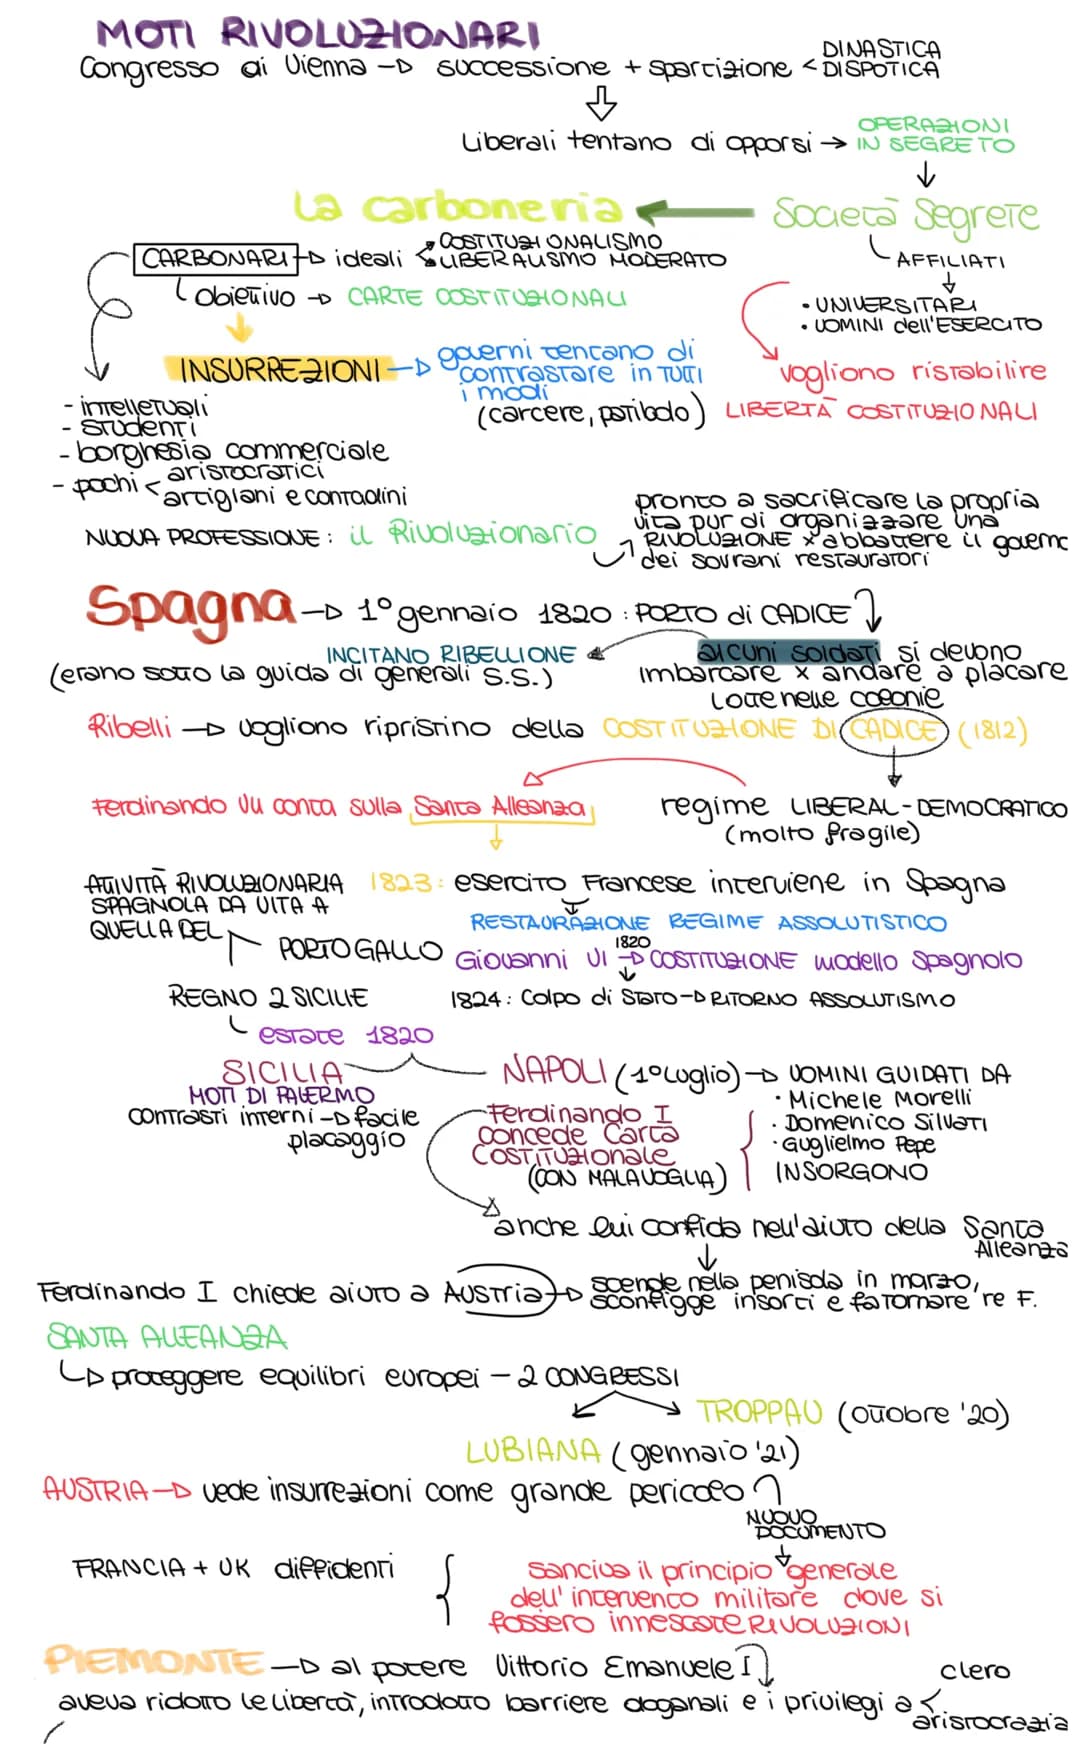 MOTI RIVOLUZIONARI
Congresso di Vienna → successione + spartizione < DINASTICA
DISPOTICA
Liberali tentano di opporsi → OPERAZIONI
IN SEGRETO
La carboneria ← Società Segrete
CARBONARI → ideali COSTITUZIONALISMO
LIBERALISMO MODERATO
AFFILIATI
Obiettivo → CARTE COSTITUZIONALI
• UNIVERSITARI
• UOMINI dell'ESERCITO
INSURREZIONI → governi tentano di
contrastare in TUTTI
i modi
(carcere, patibolo)
vogliono ristabilire
LIBERTÀ COSTITUZIONALI
- intelletuali
- studenti
- borghesia commerciale
- pochi < aristocratici
artigiani e contadini
NUOVA PROFESSIONE: il Rivoluzionario
pronto a sacrificare la propria
vita pur di organizzare una
RIVOLUZIONE x abbattere il governo
dei sovrani restauratori
Spagna → 1° gennaio 1820 : PORTO di CADICE
INCITANO RIBELLIONE ← alcuni soldati si devono
(erano sotto la guida di generali S.S.) imbarcare x andare a placare
lotte nelle colonie
Ribelli → vogliono ripristino della COSTITUZIONE DI CADICE (1812)
Ferdinando VII conta sulla Santa Alleanza
regime LIBERAL-DEMOCRATICO
(molto fragile)
ATTIVITÀ RIVOLUZIONARIA
SPAGNOLA DA VITA A
QUELLA DEL
1823: esercito Francese interviene in Spagna
RESTAURAZIONE REGIME ASSOLUTISTICO
PORTOGALLO Giovanni VI 1820 → COSTITUZIONE modello spagnolo
1824: Colpo di Stato → RITORNO ASSOLUTISMO
REGNO 2 SICILIE
estate 1820
SICILIA
MOTI DI PALERMO
contrasti interni → facile
placaggio
NAPOLI (1° Luglio) → UOMINI GUIDATI DA
• Michele Morelli
• Domenico Silvati
• Guglielmo Pepe
INSORGONO
Ferdinando I
concede Carta
COSTITUZIONALE
(CON MALAVOGLIA)
anche lui confida nell'aiuto della Santa
Alleanza
Ferdinando I chiede aiuto a Austria → scende nella penisola in marzo,
sconfigge insorti e fa tornare re F.
SANTA ALLEANZA
→ proteggere equilibri europei - 2 CONGRESSI
TROPPAU (ottobre '20)
LUBIANA (gennaio '21)
AUSTRIA → vede insurrezioni come grande pericolo
NUOVO
DOCUMENTO
FRANCIA + UK diffidenti
sanciva il principio generale
dell'intervento militare dove si
fossero innescate RIVOLUZIONI
PIEMONTE → al potere Vittorio Emanuele I
aveva ridotto le libertà, introdotto barriere doganali e i privilegi a < clero
aristocrazia